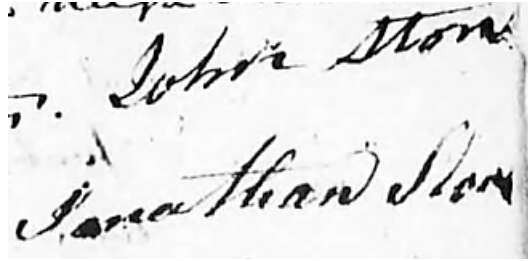 John Ston
Jonathan Ston